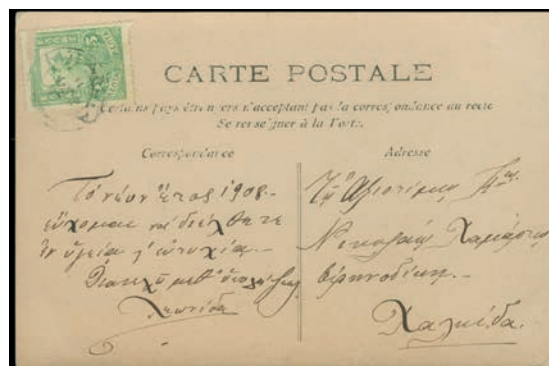 CARTE POSTALE
Certains pays étrangers n'acceptant pas la correspondance au recto
Se renseigner à la Poste.
Correspondance
Τό νέον ἔτος 1908.-
εὔχομαι νά διέλθητε
ἐν ὑγείᾳ & εὐτυχίᾳ.-
Διατελῶ μεθ'
Adresse
Τῷ Ἀξιοτίμῳ Κῳ
Νικολάῳ
Εἰρηνοδίκῃ.-
Χαλκίδα.